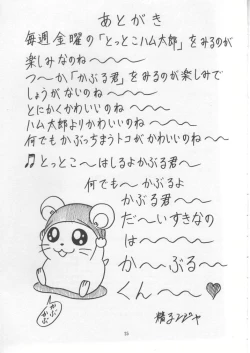 あとがき
毎週金曜の「とっとこハム太郎」をみるのが
楽しみなのね〜〜〜〜
つ〜か「かぶる君」をみるのが楽しみで
しょうがないのね〜〜〜〜
とにかくかわいいのね〜〜〜
ハム太郎よりかわいいのね〜〜〜
何でもかぶっちまうトコがかわいいのね〜〜
♫とっとこ〜はしるよかぶる君〜
何でも〜かぶるよ
かぶる君〜〜
だ〜いすきなの
は〜〜〜〜
か〜ぶる〜〜
くん〜〜〜♥
かぶ
かぶ